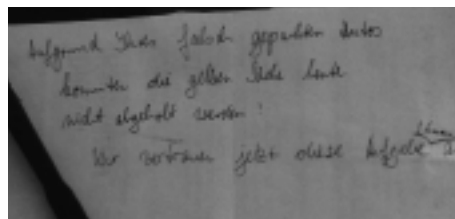 Aufgrund Ihres falsch geparkten Autos
konnten die gelben Säcke heute
nicht abgeholt werden!
Wir vertrauen jetzt diese Aufgabe